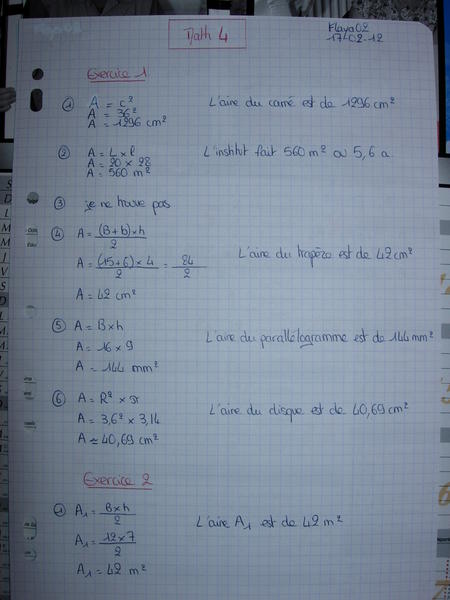 Math 4
Flaya02
17-02-12
Exercice 1
① A = c²
A = 36²
A = 1296 cm²
L'aire du carré est de 1296 cm²
② A = L x l
A = 20 x 28
A = 560 m²
L'institut fait 560 m² ou 5,6 a.
③ je ne trouve pas
④ A = (B+b)xh / 2
A = (15+6)x4 / 2 = 84 / 2
A = 42 cm²
L'aire du trapèze est de 42cm²
⑤ A = B x h
A = 16 x 9
A = 144 mm²
L'aire du parallélogramme est de 144 mm²
⑥ A = R² x π
A = 3,6² x 3,14
A ≃ 40,69 cm²
L'aire du disque est de 40,69 cm²
Exercice 2
① A₁ = Bxh / 2
A₁ = 12x7 / 2
A₁ = 42 m²
L'aire A₁ est de 42 m²